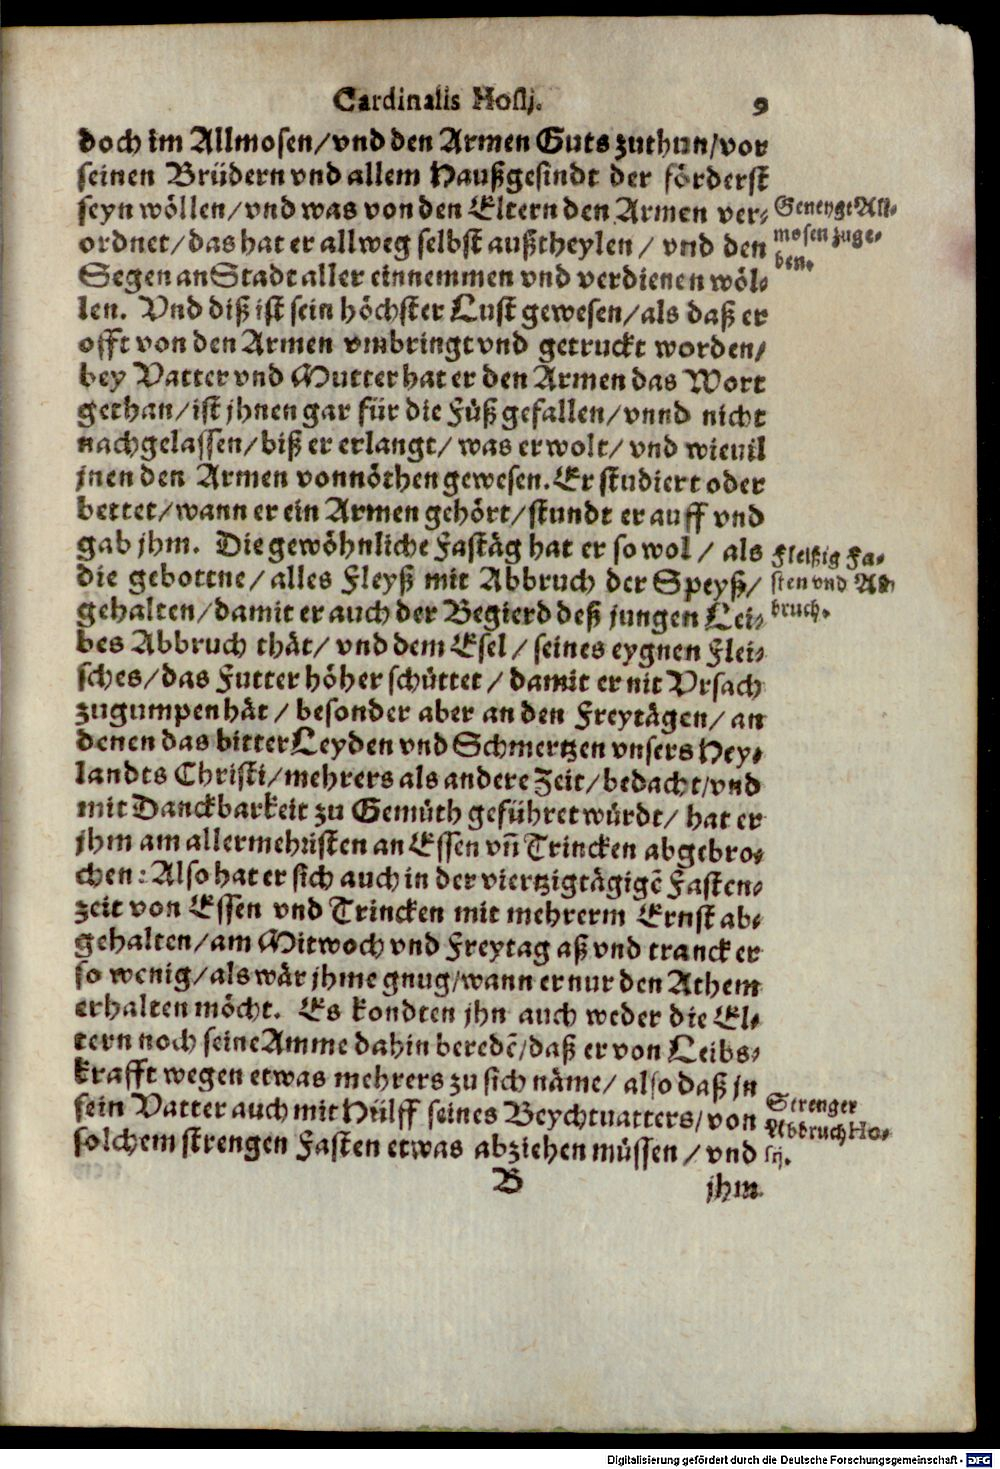 Cardinalis Hosij. 9
doch im Allmosen/vnd den Armen Guts zuthun/vor
seinen Brüdern vnd allem Haußgesindt der förderst
seyn wöllen/vnd was von den Eltern den Armen ver-
ordnet/das hat er allweg selbst außtheylen/ vnd den
Segen an Stadt aller einnemmen vnd verdienen wöl-
len. Vnd diß ist sein höchster Lust gewesen/als daß er
offt von den Armen vmbringt vnd getruckt worden/
bey Vatter vnd Mutter hat er den Armen das Wort
gethan/ist jhnen gar für die Füß gefallen/vnnd nicht
nachgelassen/biß er erlangt/was er wolt/vnd wieuil
jnen den Armen vonnöthen gewesen. Er studiert oder
bettet/wann er ein Armen gehört/stundt er auff vnd
gab jhm. Die gewöhnliche Fastäg hat er so wol/ als
die gebottne/alles Fleyß mit Abbruch der Speyß/
gehalten/damit er auch der Begierd deß jungen Lei-
bes Abbruch thät/ vnd dem Esel/ seines eygnen Flei-
sches/das Futter höher schüttet/ damit er nit Vrsach
zugumpen hät/ besonder aber an den Freytägen/ an
denen das bitter Leyden vnd Schmertzen vnsers Hey-
landts Christi/mehrers als andere Zeit/bedacht/vnd
mit Danckbarkeit zu Gemüth geführet würdt/ hat er
jhm am allermehristen an Essen vñ Trincken abgebro-
chen: Also hat er sich auch in der viertzigtägigẽ Fasten-
zeit von Essen vnd Trincken mit mehrerm Ernst ab-
gehalten/am Mitwoch vnd Freytag aß vnd tranck er
so wenig/als wär jhme gnug/wann er nur den Athem
erhalten möcht. Es kondten jhn auch weder die El-
tern noch seine Amme dahin beredẽ/daß er von Leibs-
krafft wegen etwas mehrers zu sich näme/ also daß jn
sein Vatter auch mit Hülff seines Beychtuatters/von
solchem strengen Fasten etwas abziehen müssen/ vnd
B jhm
Geneygt All-
mosen zuge-
ben.
Fleißig Fa-
sten vnd Ab
bruch.
Strenger
Abbruch Ho-
sij.
Digitalisierung gefördert durch die Deutsche Forschungsgemeinschaft - DFG